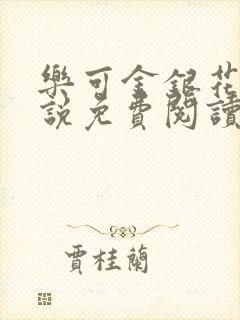 樂可金銀花
說免費閱讀
賈桂蘭